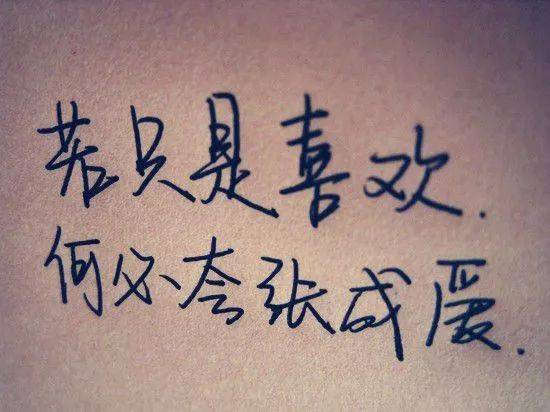 若只是喜欢.
何必夸张成爱.